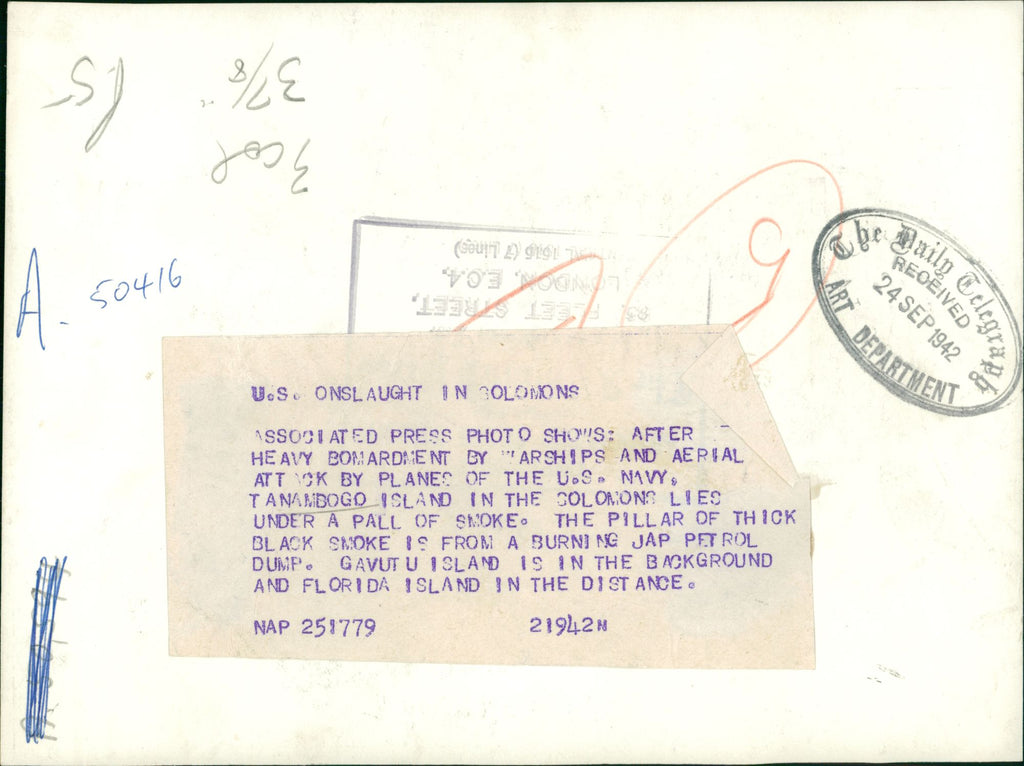 3 7/8"
3 col
A. 50416
1616 (7 Lines)
LONDON, E.C.4.
FLEET STREET,
9
The Daily Telegraph
RECEIVED
24 SEP 1942
ART DEPARTMENT
U.S. ONSLAUGHT IN SOLOMONS
ASSOCIATED PRESS PHOTO SHOWS: AFTER
HEAVY BOMARDMENT BY WARSHIPS AND AERIAL
ATTACK BY PLANES OF THE U.S. NAVY,
TANAMBOGO ISLAND IN THE SOLOMONS LIES
UNDER A PALL OF SMOKE. THE PILLAR OF THICK
BLACK SMOKE IS FROM A BURNING JAP PETROL
DUMP. GAVUTU ISLAND IS IN THE BACKGROUND
AND FLORIDA ISLAND IN THE DISTANCE.
NAP 251779 21942N